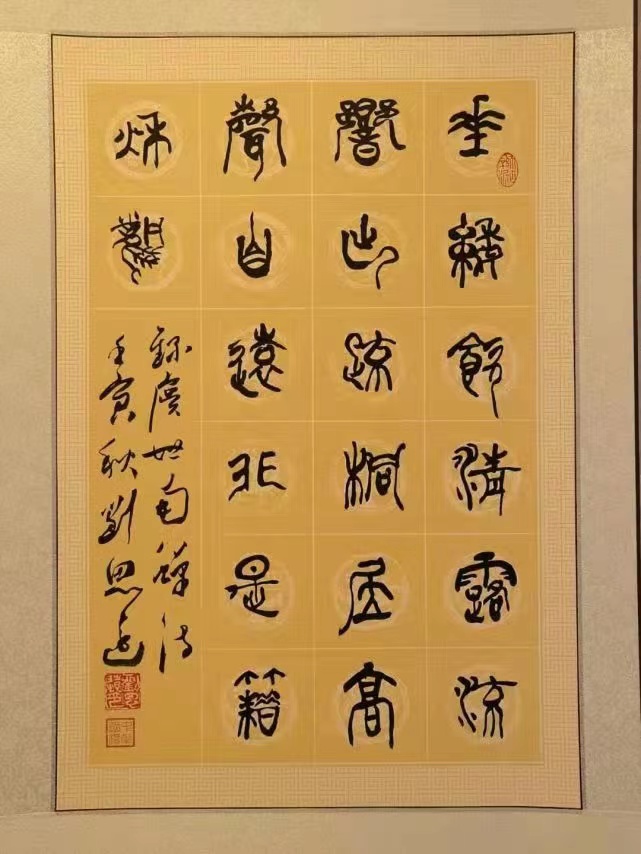 垂緌飲清露流
響出疏桐居高
聲自遠非是籍
秌風
錄虞世南蟬詩
壬寅秋劉思